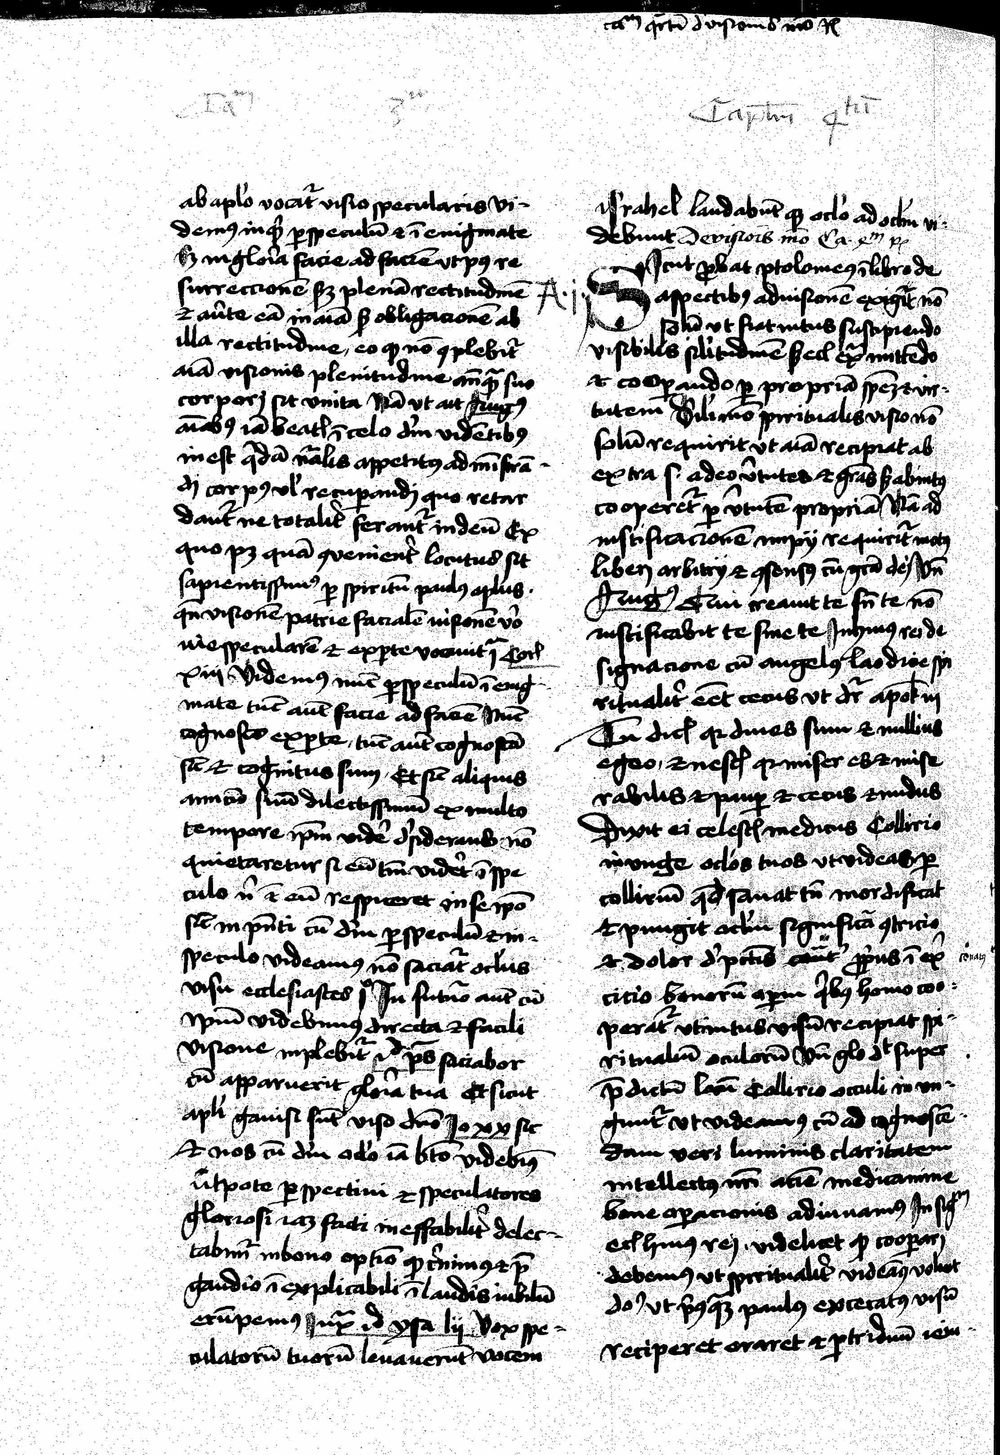 cam qrtu d visionis mo
Cam 3m
Captm qrtu
ab aplo vocatr visio specularis vi-
demus inqt per speculu et i enigmate
sz in gloria facie ad facie ut pus re
surreccione sz plenam rectitudine
et ante ea in aia sz obligacione ab
illa rectitudine, eo qd no qplebitr
aia visionis plenitudine anqz suo
corpori sit unita Na ut ait Augus
aiabus ia beatis i celo dm videntibus
inest qda nralis appetitus ad mistra-
di corpus vel recuperandi quo retar
dantr ne totalitr ferantr in deu Ex
quo pz qua qvenientr locutus sit
sapientissimus per spiritu paulus aplus
qn visionem patrie facialem visionem vo
vie speculare et ex parte vocavit i Cor
xiii Videmus nuc per speculu i enig
mate tuc aut facie ad facie Nuc
cognosco ex parte, tuc aut cognosca
sic et cognitus sum. Et sic aliquis
amicu suu dilectissimum ex multo
tempore ipm videre desiderans no
quietaretur si eu tm videret i spe
culo n et eu respiceret in se ipo
sic in pnti cu dm per speculu et in-
speculo videamus no saciatr oculus
visu ecclesiastes io In futuro aut cu
ipum videbimus directa et faciali
visione inplebitr id ps saciabor
cu apparuerit gloria tua Et sicut
apli gavisi sut viso dno Jo xx sic
Et nos cu dm oclo ia bto videbimus
utpote perspectivi et speculatores
gloriosi iaz facti ineffabilitr delec-
tabimr in bono optio qd cernimus et pre
gaudio i explicabili i laudis iubilu
erumpemus Iuxta id ysa lii Vox spe-
culatoru tuoru levaverut vocem
israhel laudabut qz oclo ad oclm vi-
debunt De visiois mo Ca. qm pm
A.i. Sicut probat ptolomeus i libro de
aspectibus ad visionem exigitr no
solu ut fiat intus suscipiendo
visibilis silitudine sed ex mittedo
et cooperando per propria spez et vir-
tutem Sili mo spiritualis visio no
solu requirit ut aia recipiat ab
extra s. a deo virtutes et gras sz ab intus
cooperetr per virtute propria Na ad
iustificacionem impii requiritr motus
liberi arbitrii et qsensus cu gra dei Vn
Augus Qui creavit te sn te no
iustificabit te sine te In huius rei de
signacione cu angelus laodicie spi
ritualitr eet cecus ut dr apok iii
Tu dicis qz dives sum et nullius
egeo, et nescis qz miser es et mise
rabilis et paup et cecus et nudus
Dixit ei celestis medicus Collirio
inunge oclos tuos ut videas per
colliriu qd sanat tn mordificat
et pungit oclm significa qtricio
et dolor de pctis ppus i ex
ronatus
citio bonoru operm qibus homo coo-
peratr ut intus visu recipiat spi-
ritualiu oculoru Vn glo dt super
predictu locu Collirio occuli in un-
guntr ut videamus cu ad cognosce-
dam veri luminis claritatem
intellectus nri acie medicamine
bone operacionis adiuvamus In sigm
ecl huius rei, videlicet qd cooperari
debemus ut spiritualitr videamus voluit
do ut paulus excecatus visu
reciperet oraret et per triduu ieiu-